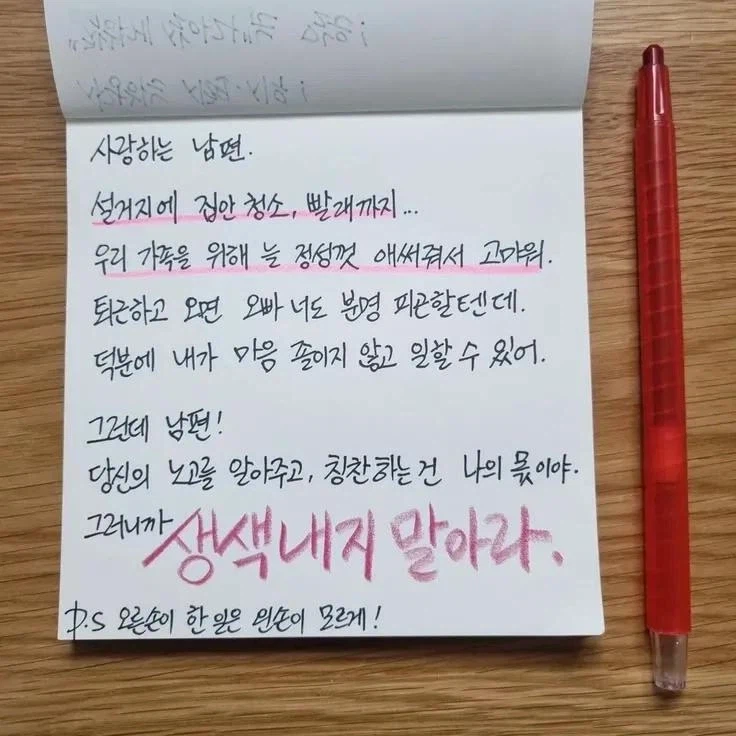 사랑하는 남편.
설거지에 집안 청소, 빨래까지...
우리 가족을 위해 늘 정성껏 애써줘서 고마워.
퇴근하고 오면 오빠 너도 분명 피곤할텐데.
덕분에 내가 마음 졸이지 않고 일할 수 있어.
그런데 남편!
당신의 노고를 알아주고, 칭찬하는 건 나의 몫이야.
그러니까 생색내지 말아라.
P.S 오른손이 한 일은 왼손이 모르게!